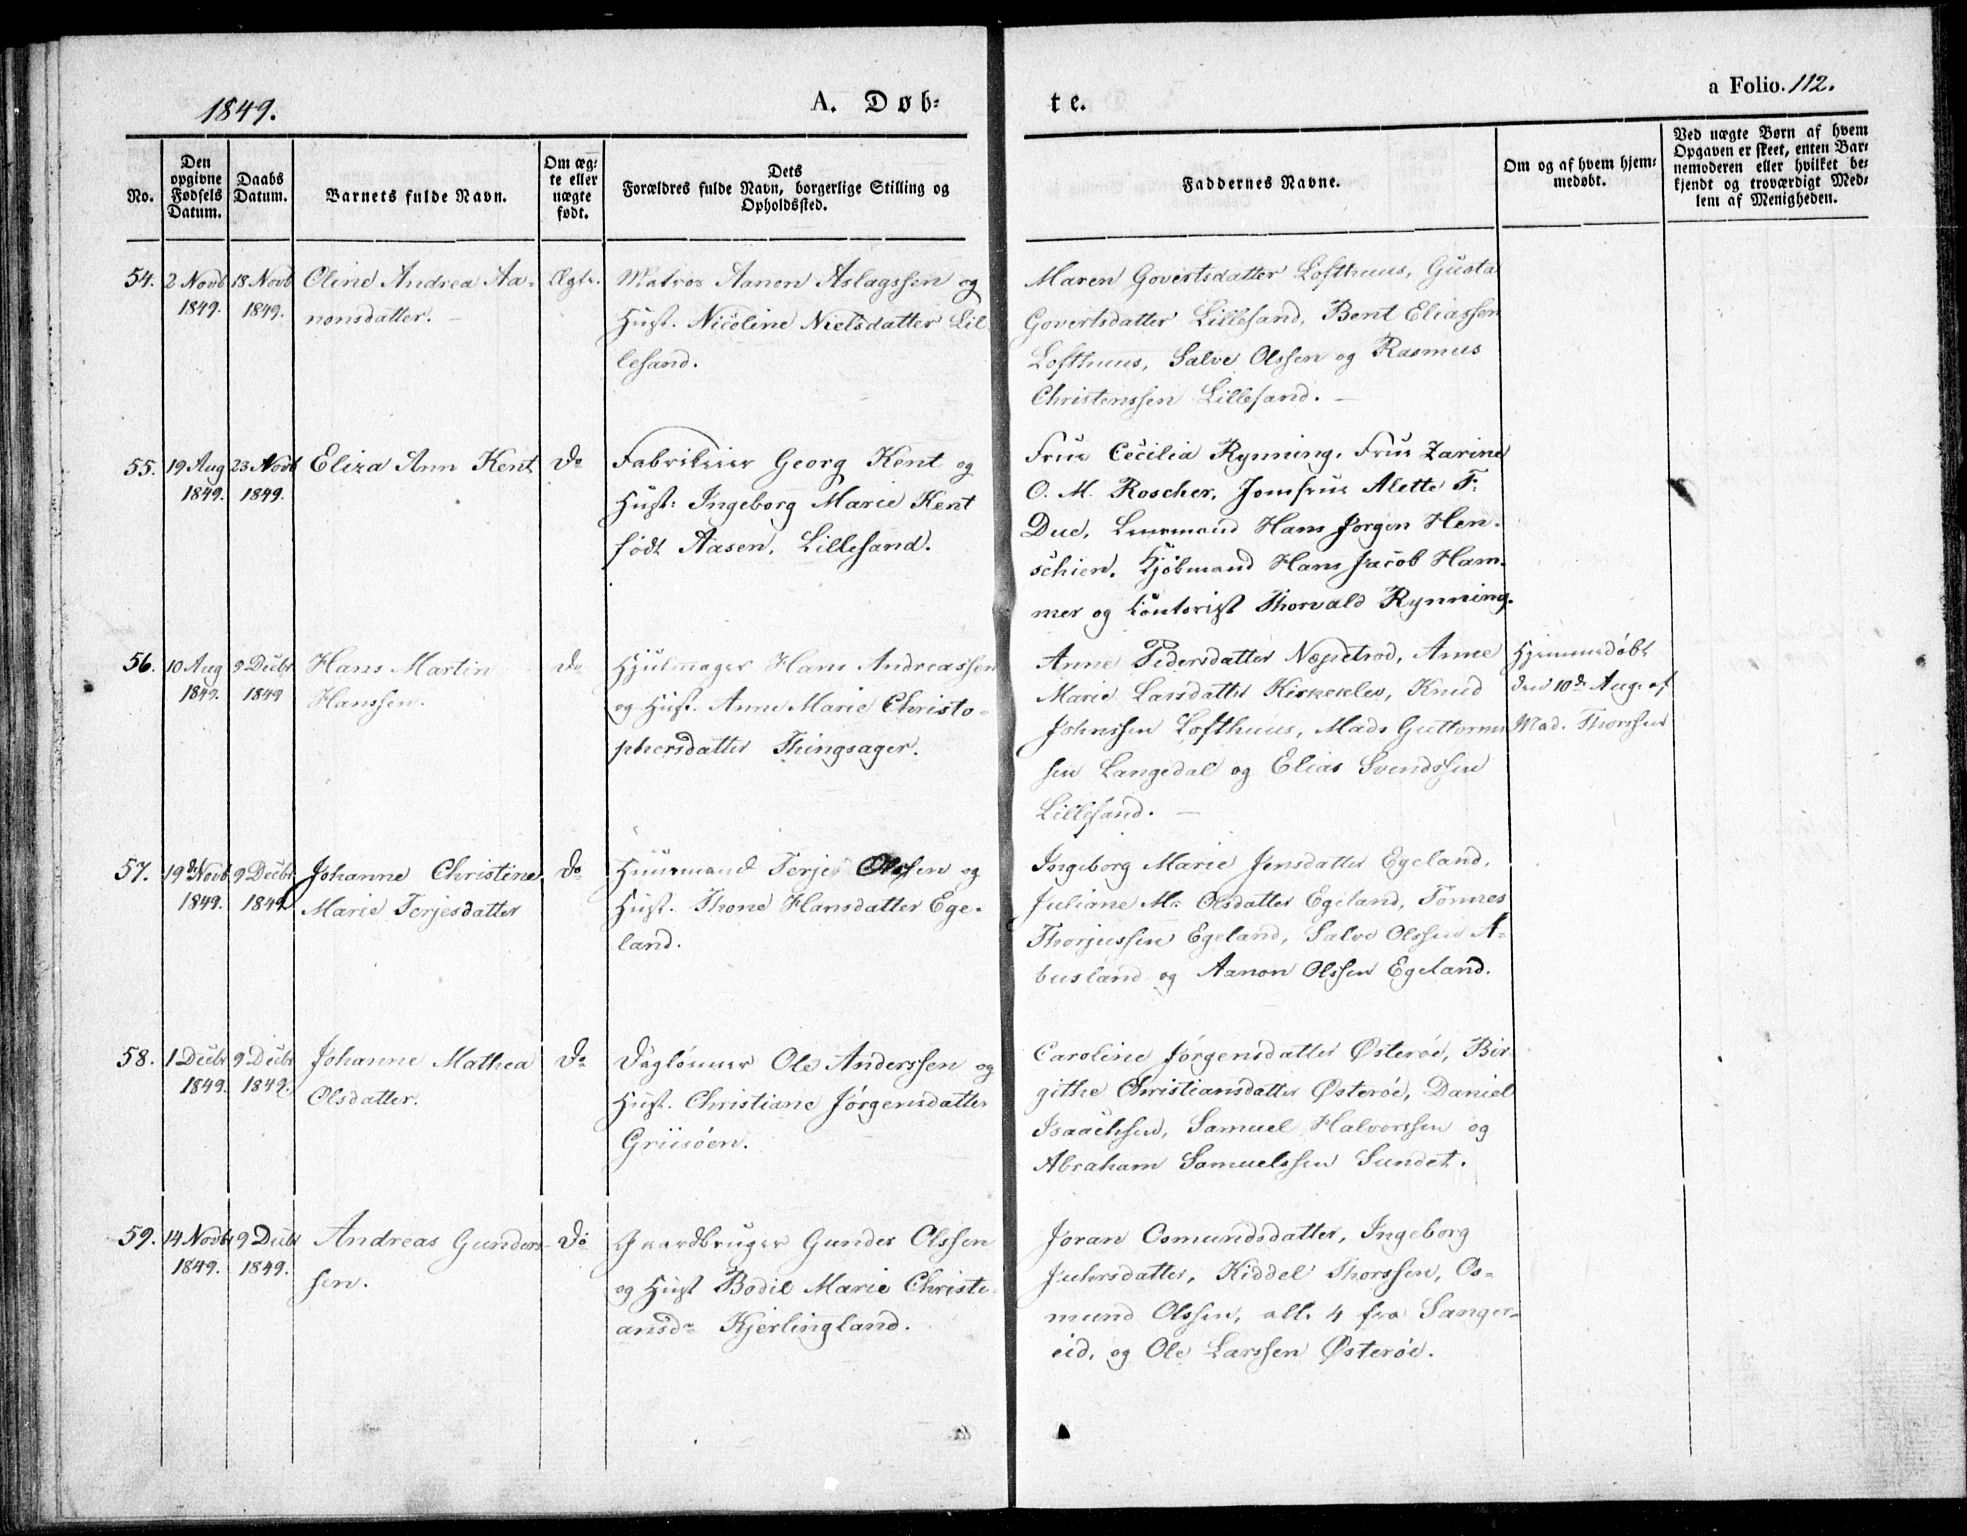 1849.
A. Døb=
te.
a Folio. 112.
No.
Den opgivne Fødsels Datum.
Daabs Datum.
Barnets fulde Navn.
Om æg= te eller nægte født.
Dets
Forældres fulde Navn, borgerlige Stilling og
Opholdssted.
Faddernes Navne.
Om og af hvem hjem=
medøbt.
Ved uægte Børn af hvem
Opgaven er skeet, enten Bar=
nemoderen eller hvilket be=
kjendt og troværdigt Med=
lem af Menigheden.
54. 2 Novb 18 Novb Oline Andrea Aa- Ægte. Matros Aanon Aslagssen og
1849. 1849. nonsdatter. — Hust. Nicoline Nielsdatter Lil
lesand.
Maren Govertsdatter Lofthuus, Gusta
Govertsdatter Lillesand, Bent Eliassen
Lofthuus, Salve Olssen og Rasmus
Christenssen Lillesand. —
55. 19 Aug 23 Novb Eliza Ann Kent Do Fabrikeier Georg Kent og
1849. 1849. Hust: Ingeborg Marie Kent
født Aasen, Lillesand.
Frue Cecilia Rynning, Frue Zarine
O. M. Roscher, Jomfrue Alette F:
Due, Lensmand Hans Jørgen Hen-
schien, Kjøbmand Hans Jacob Ham-
mer og Contorist Thorvald Rynning.
56. 10 Aug 9 Decbr Hans Martin Do Hjulmager Hans Andreassen
1849. 1849 Hanssen. og Hust. Anne Marie Christo-
phersdatter Thingsager.
Anne Pedersdatter Næpetrod, Anne
Marie Larsdatter Kirkeklev, Knud
Johnssen Lofthuus, Mads Guttorms
sen Langedal og Elias Svendssen
Lillesand. —
Hjemmedøbt
den 10de Aug. af
Mad. Thorssen
57. 19de Novb 9 Decbr Johanne Christine Do Huusmand Terjes Olssen og
1849. 1849 Marie Terjesdatter Hust. Thone Hansdatter Ege-
land.
Ingeborg Marie Jensdatter Egeland,
Juliane M: Olsdatter Egeland, Tønnes
Thorjussen Egeland, Salve Olssen A-
busland og Aanon Olssen Egeland.
58. 1 Decbr 9 Decbr Johanne Mathea Do Daglønner Ole Anderssen og
1849. 1849. Olsdatter. Hust. Christiane Jørgensdatter
Griisøen.
Caroline Jørgensdatter Østerøe, Bir
githe Christiansdatter Østerøe, Daniel
Isaachsen, Samuel Halvorssen og
Abraham Samuelssen Sundet.
59. 14 Novb 9 Decbr Andreas Gunders- Do Gaardbruger Gunder Olssen
1849. 1849. sen. og Hust Bodil Marie Christi-
ansdr Kjerlingland.
Joran Osmundsdatter, Ingeborg
Kiddel Thorssen, Os-
mund Olssen, all. 4 fra Sanger-
eid, og Ole Larssen Østerøe.